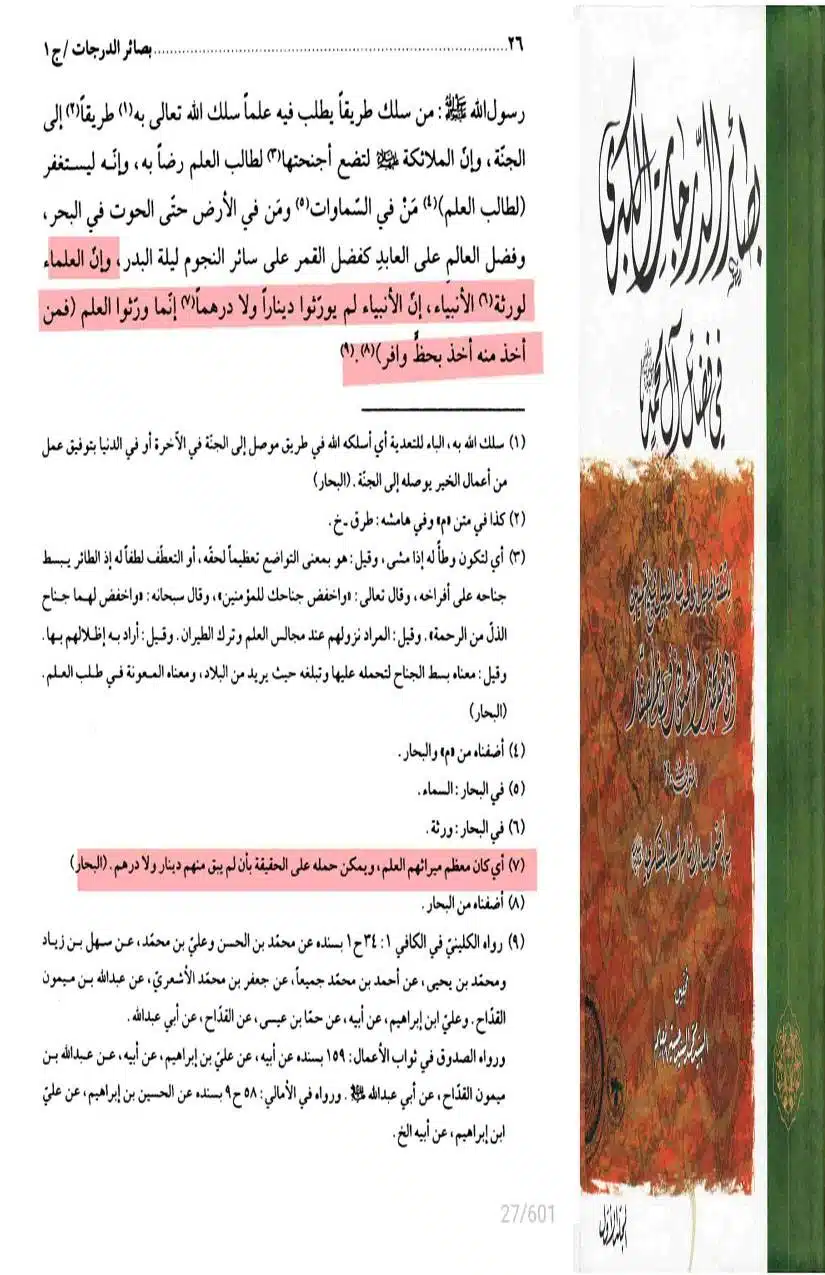 ٢٦ ........ بصائر الدرجات /ج ١
رسول الله ﷺ : من سلك طريقاً يطلب فيه علماً سلك الله تعالى به(١) طريقاً(٢) إلى
الجنّة ، وإنّ الملائكة لتضع أجنحتها(٣) لطالب العلم رضاً به ، وإنّـه ليستغفر
(لطالب العلم)(٤) مَنْ في السّماوات(٥) ومَن في الأرض حتّى الحوت في البحر ،
وفضل العالمِ على العابدِ كفضل القمر على سائر النجوم ليلة البدر ، وإنّ العلماء
لورثة(٦) الأنبياء ، إنّ الأنبياء لم يورّثوا ديناراً ولا درهماً(٧) إنّما ورّثوا العلم (فمن
أخذ منه أخذ بحظٍّ وافر)(٨).(٩)
(١) سلك الله به ، الباء للتعدية أي أسلكه الله في طريق موصل إلى الجنّة في الآخرة أو في الدنيا بتوفيق عمل
من أعمال الخير يوصله إلى الجنّة . (البحار)
(٢) كذا في متن «م» وفي هامشه : طرق ـ خ .
(٣) أي لتكون وطأً له إذا مشى ، وقيل : هو بمعنى التواضع تعظيماً لحقّه ، أو التعطّف لطفاً له إذ الطائر يبسط
جناحه على أفراخه ، وقال تعالى : «واخفض جناحك للمؤمنين» ، وقال سبحانه : «واخفض لهما جناح
الذلّ من الرحمة» . وقيل : المراد نزولهم عند مجالس العلم وترك الطيران . وقيل : أراد به إظلالهم بها .
وقيل : معناه بسط الجناح لتحمله عليها وتبلغه حيث يريد من البلاد ، ومعناه المعونة في طلب العلم .
(البحار)
(٤) أضفناه من «م» والبحار .
(٥) في البحار : السماء .
(٦) في البحار : ورثة .
(٧) أي كان معظم ميراثهم العلم ، ويمكن حمله على الحقيقة بأن لم يبق منهم دينار ولا درهم . (البحار)
(٨) أضفناه من البحار .
(٩) رواه الكلينيّ في الكافي ١ : ٣٤ ح ١ بسنده عن محمّد بن الحسن وعليّ بن محمّد ، عن سهل بن زياد
ومحمّد بن يحيى ، عن أحمد بن محمّد جميعاً ، عن جعفر بن محمّد الأشعريّ ، عن عبدالله بن ميمون
القدّاح . وعليّ ابن إبراهيم ، عن أبيه ، عن حمّا بن عيسى ، عن القدّاح ، عن أبي عبدالله .
ورواه الصدوق في ثواب الأعمال : ١٥٩ بسنده عن أبيه ، عن عليّ بن إبراهيم ، عن أبيه ، عن عبدالله بن
ميمون القدّاح ، عن أبي عبدالله . ورواه في الأمالي : ٥٨ ح ٩ بسنده عن الحسين بن إبراهيم ، عن عليّ
ابن إبراهيم ، عن أبيه الخ .
27/601
بصائر الدّرجات الكبرى
في فضائل آل محمّد
تحقيق